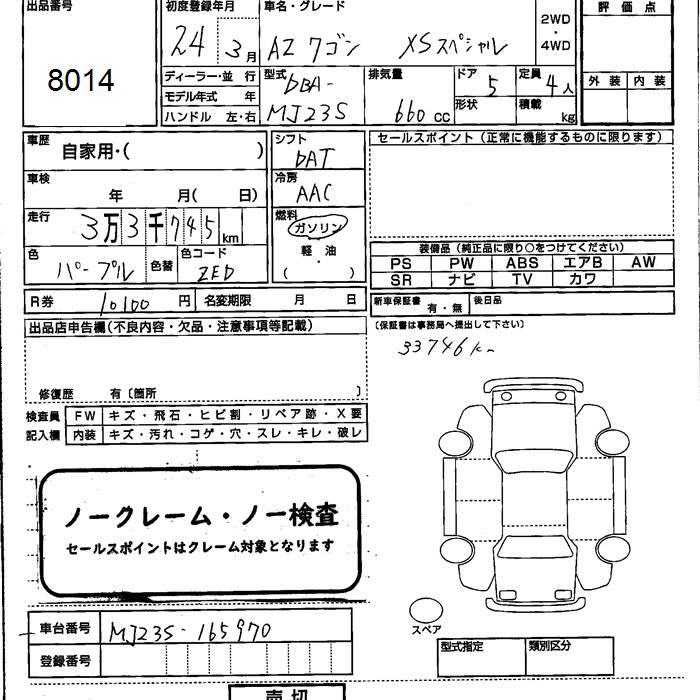 出品番号
8014
初度登録年月
24 3月
車名・グレード
AZワゴン XSスペシャル
2WD
・
4WD
評価点
外装 内装
ディーラー・並行
モデル年式 年
ハンドル 左・右
型式
DBA-
MJ23S
排気量
660 cc
ドア
5
形状
定員
4人
積載
kg
車歴
自家用・( )
車検
年 月( 日)
走行
3万3千745km
色
パープル
色替
色コード
ZED
シフト
DAT
冷房
AAC
燃料
ガソリン
軽・油
( ・ )
セールスポイント(正常に機能するものに限ります)
装備品(純正品に限り○をつけてください)
PS PW ABS エアB AW
SR ナビ TV カワ
R券 10100円
名変期限 月 日
新車保証書 有・無
後日品
(保証書は事務局へ提出して下さい)
33746km
出品店申告欄(不良内容・欠品・注意事項等記載)
修復歴 有〔箇所 〕
検査員記入欄
FW キズ・飛石・ヒビ割・リペア跡・X要
内装 キズ・汚れ・コゲ・穴・スレ・キレ・破レ
ノークレーム・ノー検査
セールスポイントはクレーム対象となります
車台番号 MJ23S-165970
登録番号
スペア
型式指定 類別区分
売切